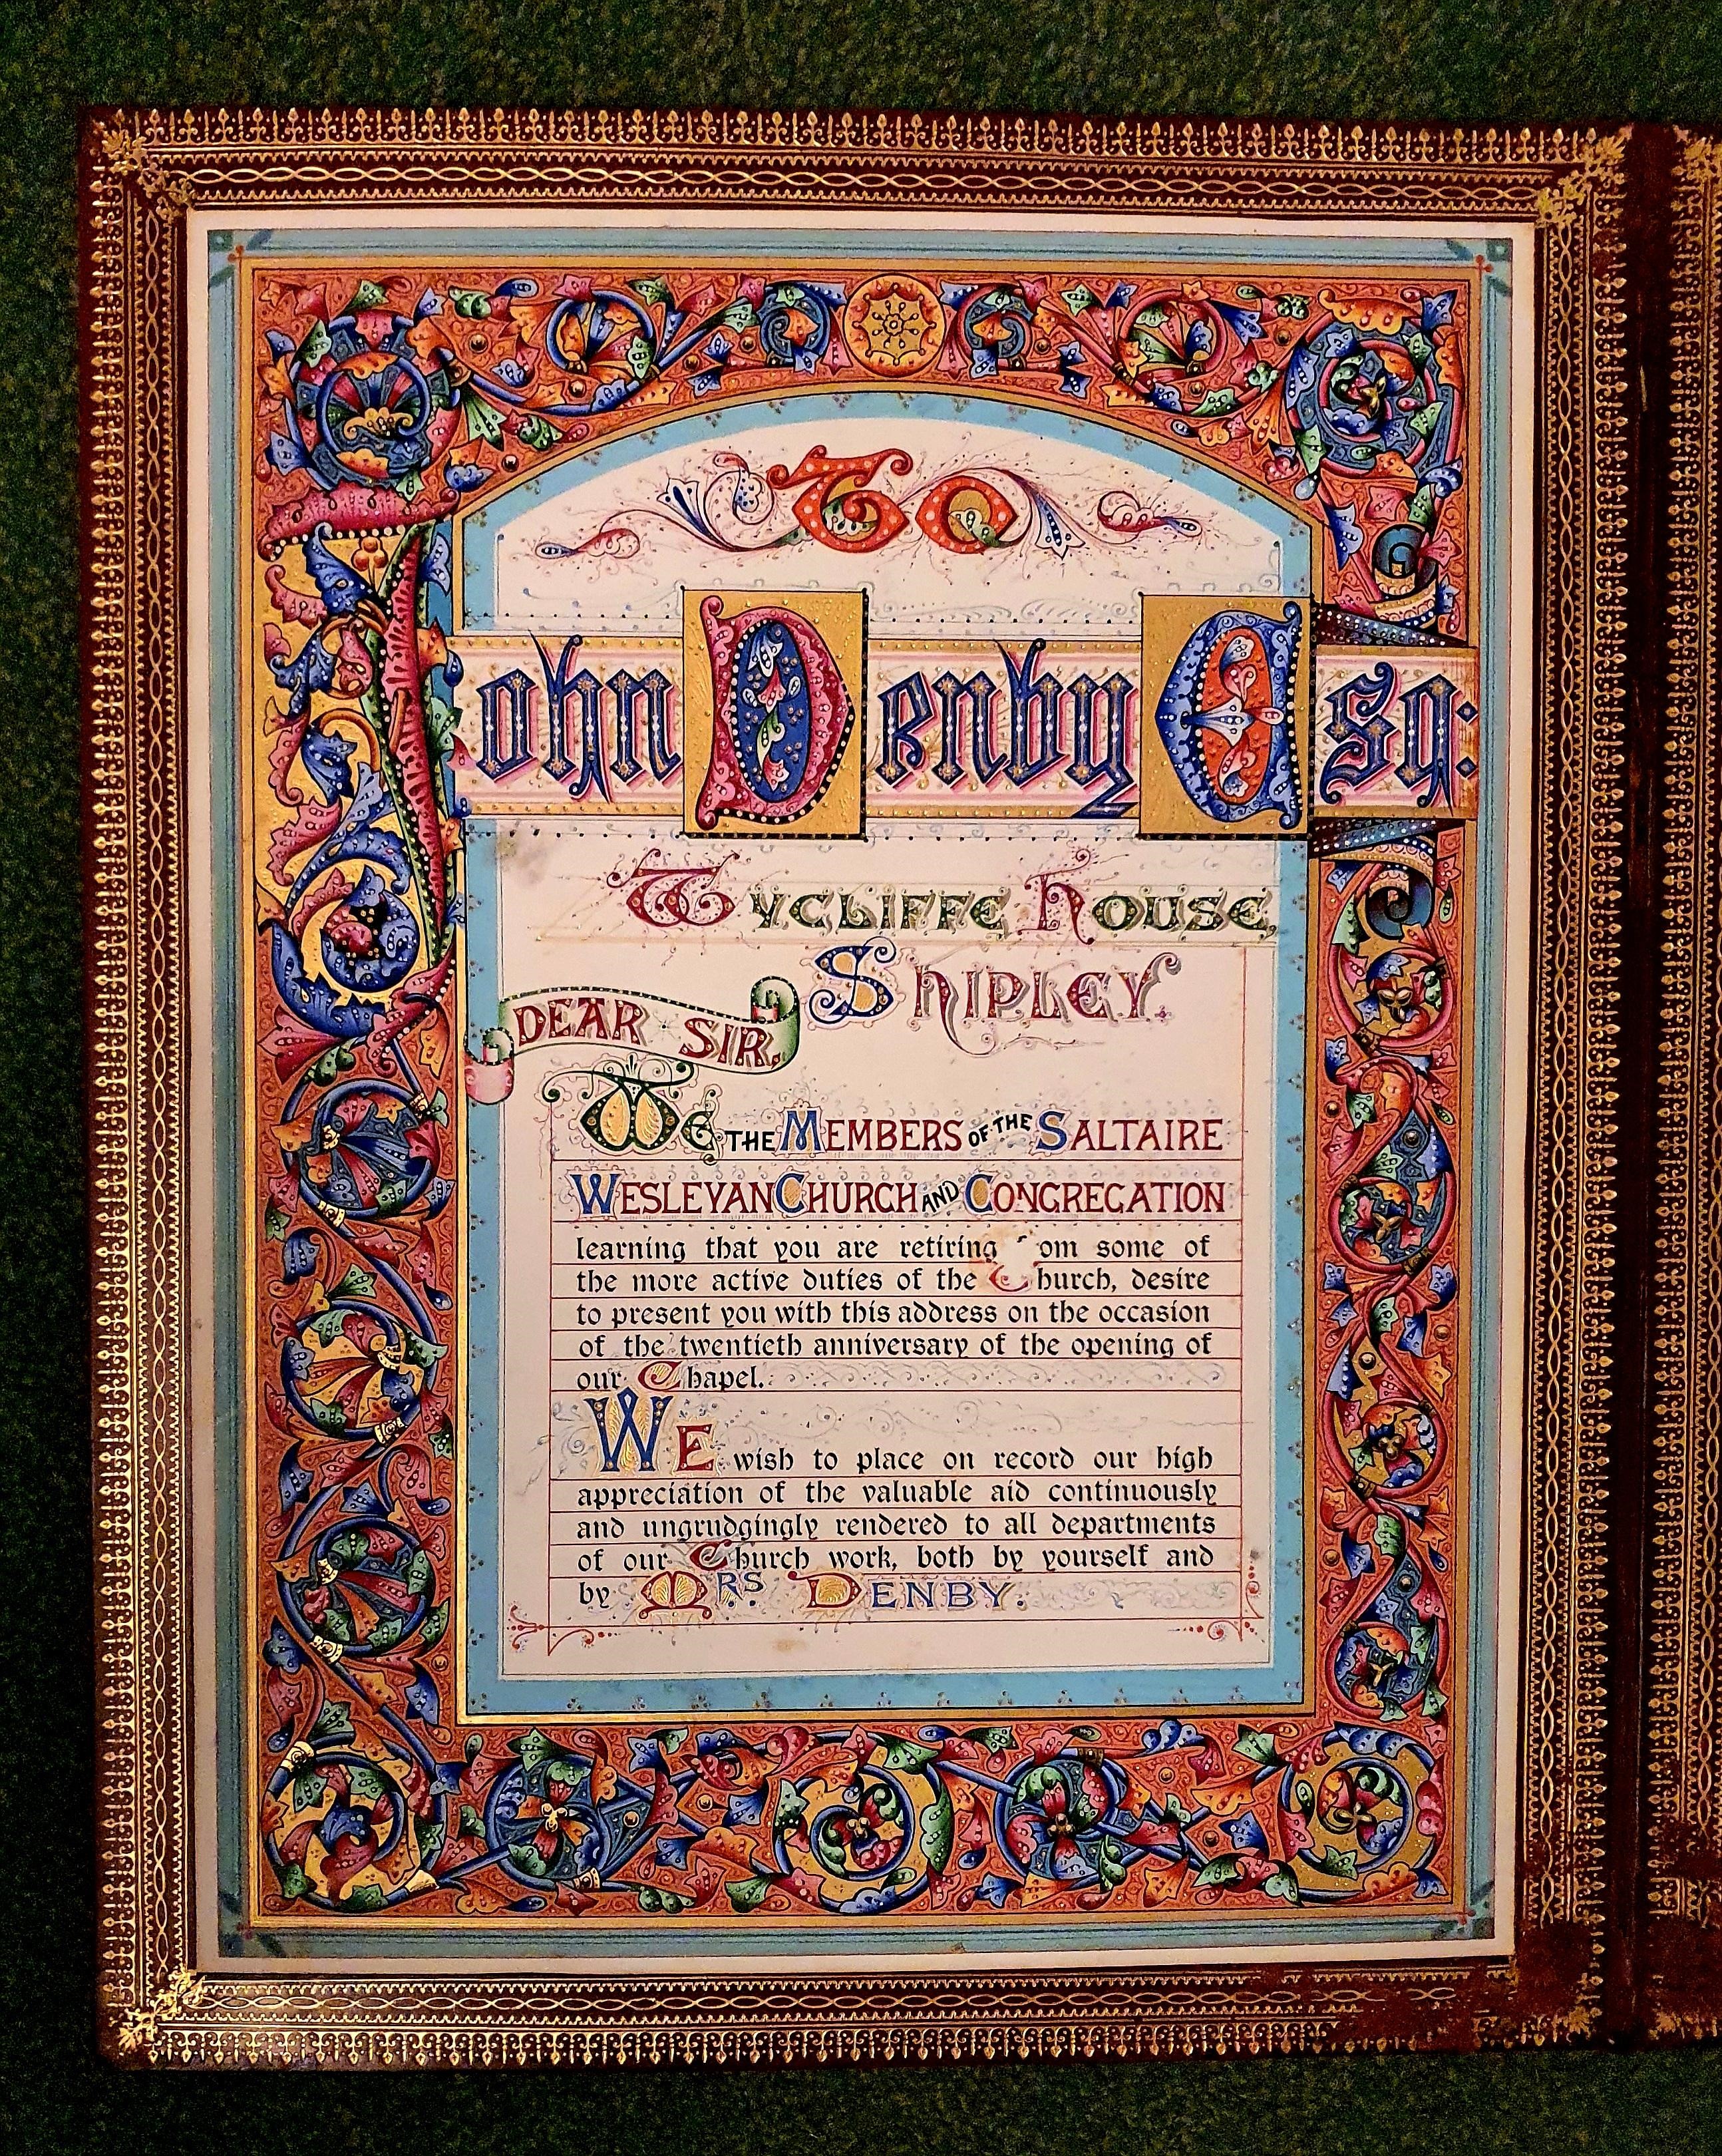 To
John Denby Esq:
Wycliffe House,
Shipley.
DEAR SIR,
We THE MEMBERS OF THE SALTAIRE
WESLEYAN CHURCH AND CONGREGATION
learning that you are retiring from some of
the more active duties of the Church, desire
to present you with this address on the occasion
of the twentieth anniversary of the opening of
our Chapel.
WE wish to place on record our high
appreciation of the valuable aid continuously
and ungrudgingly rendered to all departments
of our Church work, both by yourself and
by MRS. DENBY.